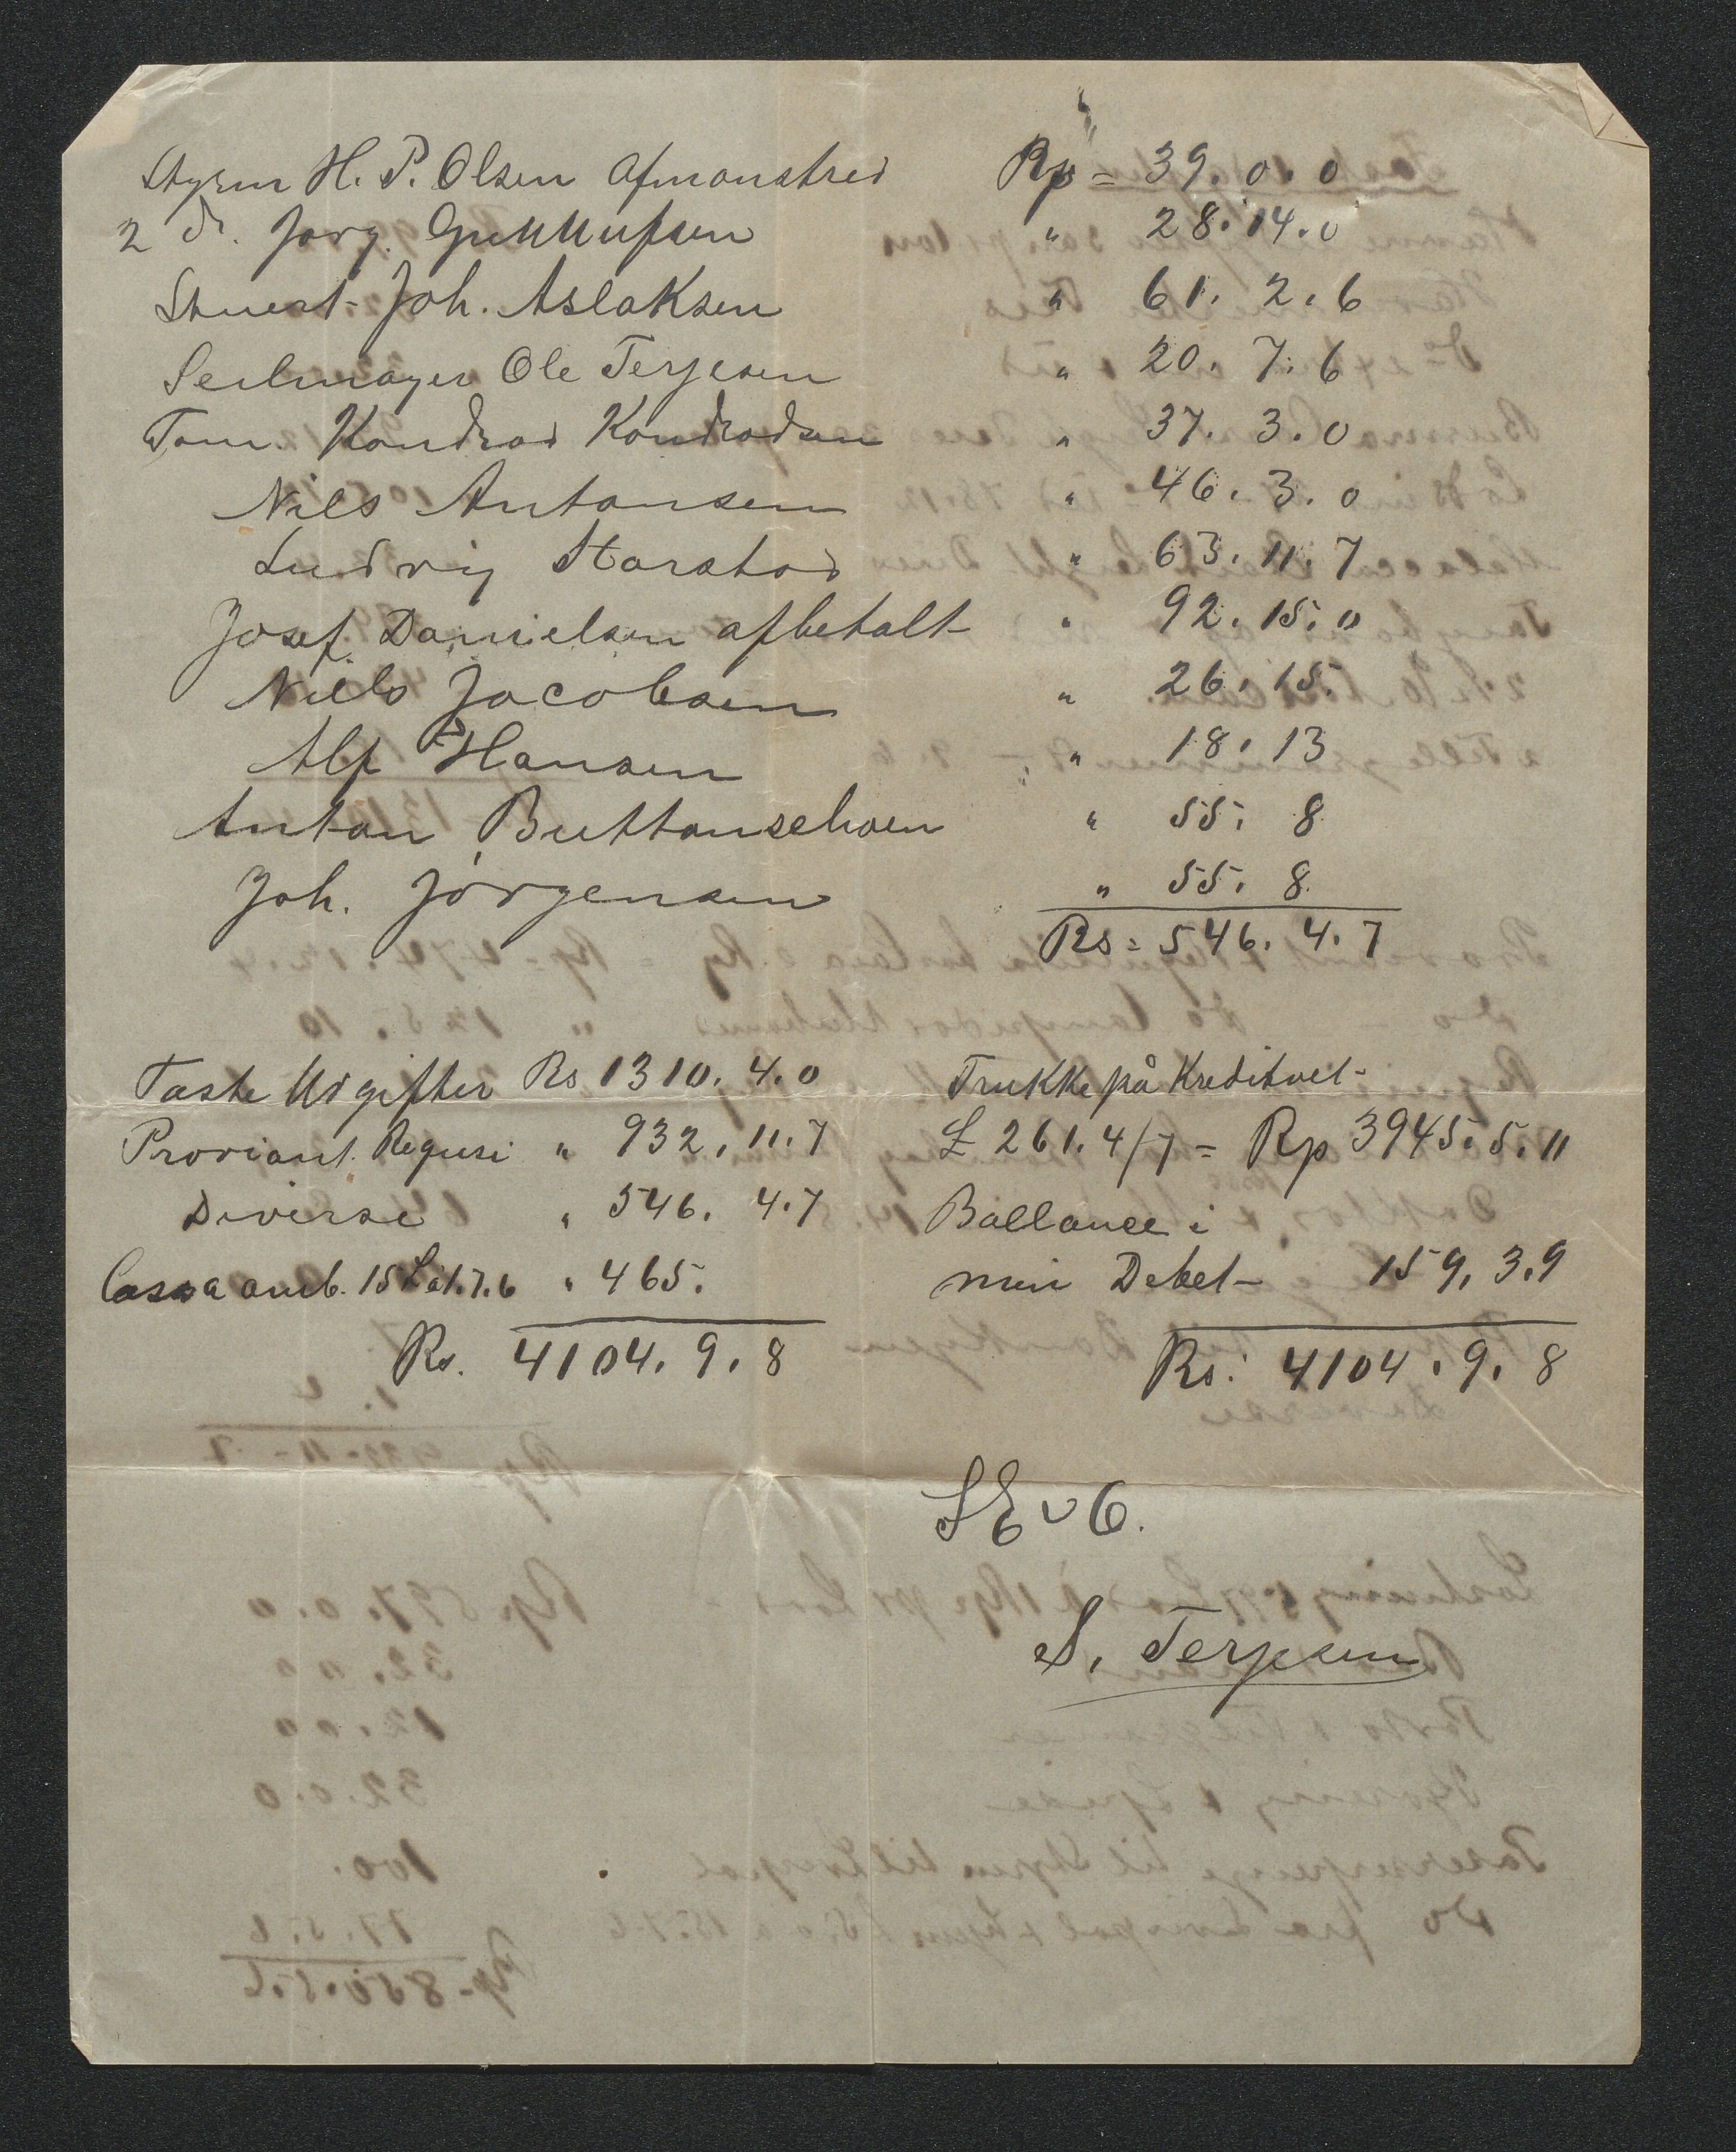 Styrm H. P. Olsen Afmonstred Rp = 39. 0. 0
2 d. Jørg. Gunnufsen " 28. 14. 0
Stuert Joh. Aslaksen " 61. 2. 6
Seilmager Ole Terjesen " 20. 7. 6
Tøm. Kondrad Kondradsen " 37. 3. 0
Nils Antonsen " 46. 3. 0
Ludvig Harstad " 63. 11. 7
Josef Danielsen afbetalt " 92. 15. 0
Niels Jacobsen " 26. 15.
Alf Hansen " 18. 13
Anton Buttonschøen " 55. 8
Joh. Jørgensen " 55. 8
Rs = 546. 4. 7
Faste Udgifter Rs 1310. 4. 0
Proviant. Requsi " 932. 11. 7
Diverse " 546. 4. 7
Cassa omb. 15 £ a 1.7.6 " 465.
Rs. 4104. 9. 8
Trukke på Kreditvet
£ 261. 4/7 = Rp 3945. 5. 11
Ballance i
min Debet 159. 3. 9
Rs: 4104. 9. 8
S. Terjesen